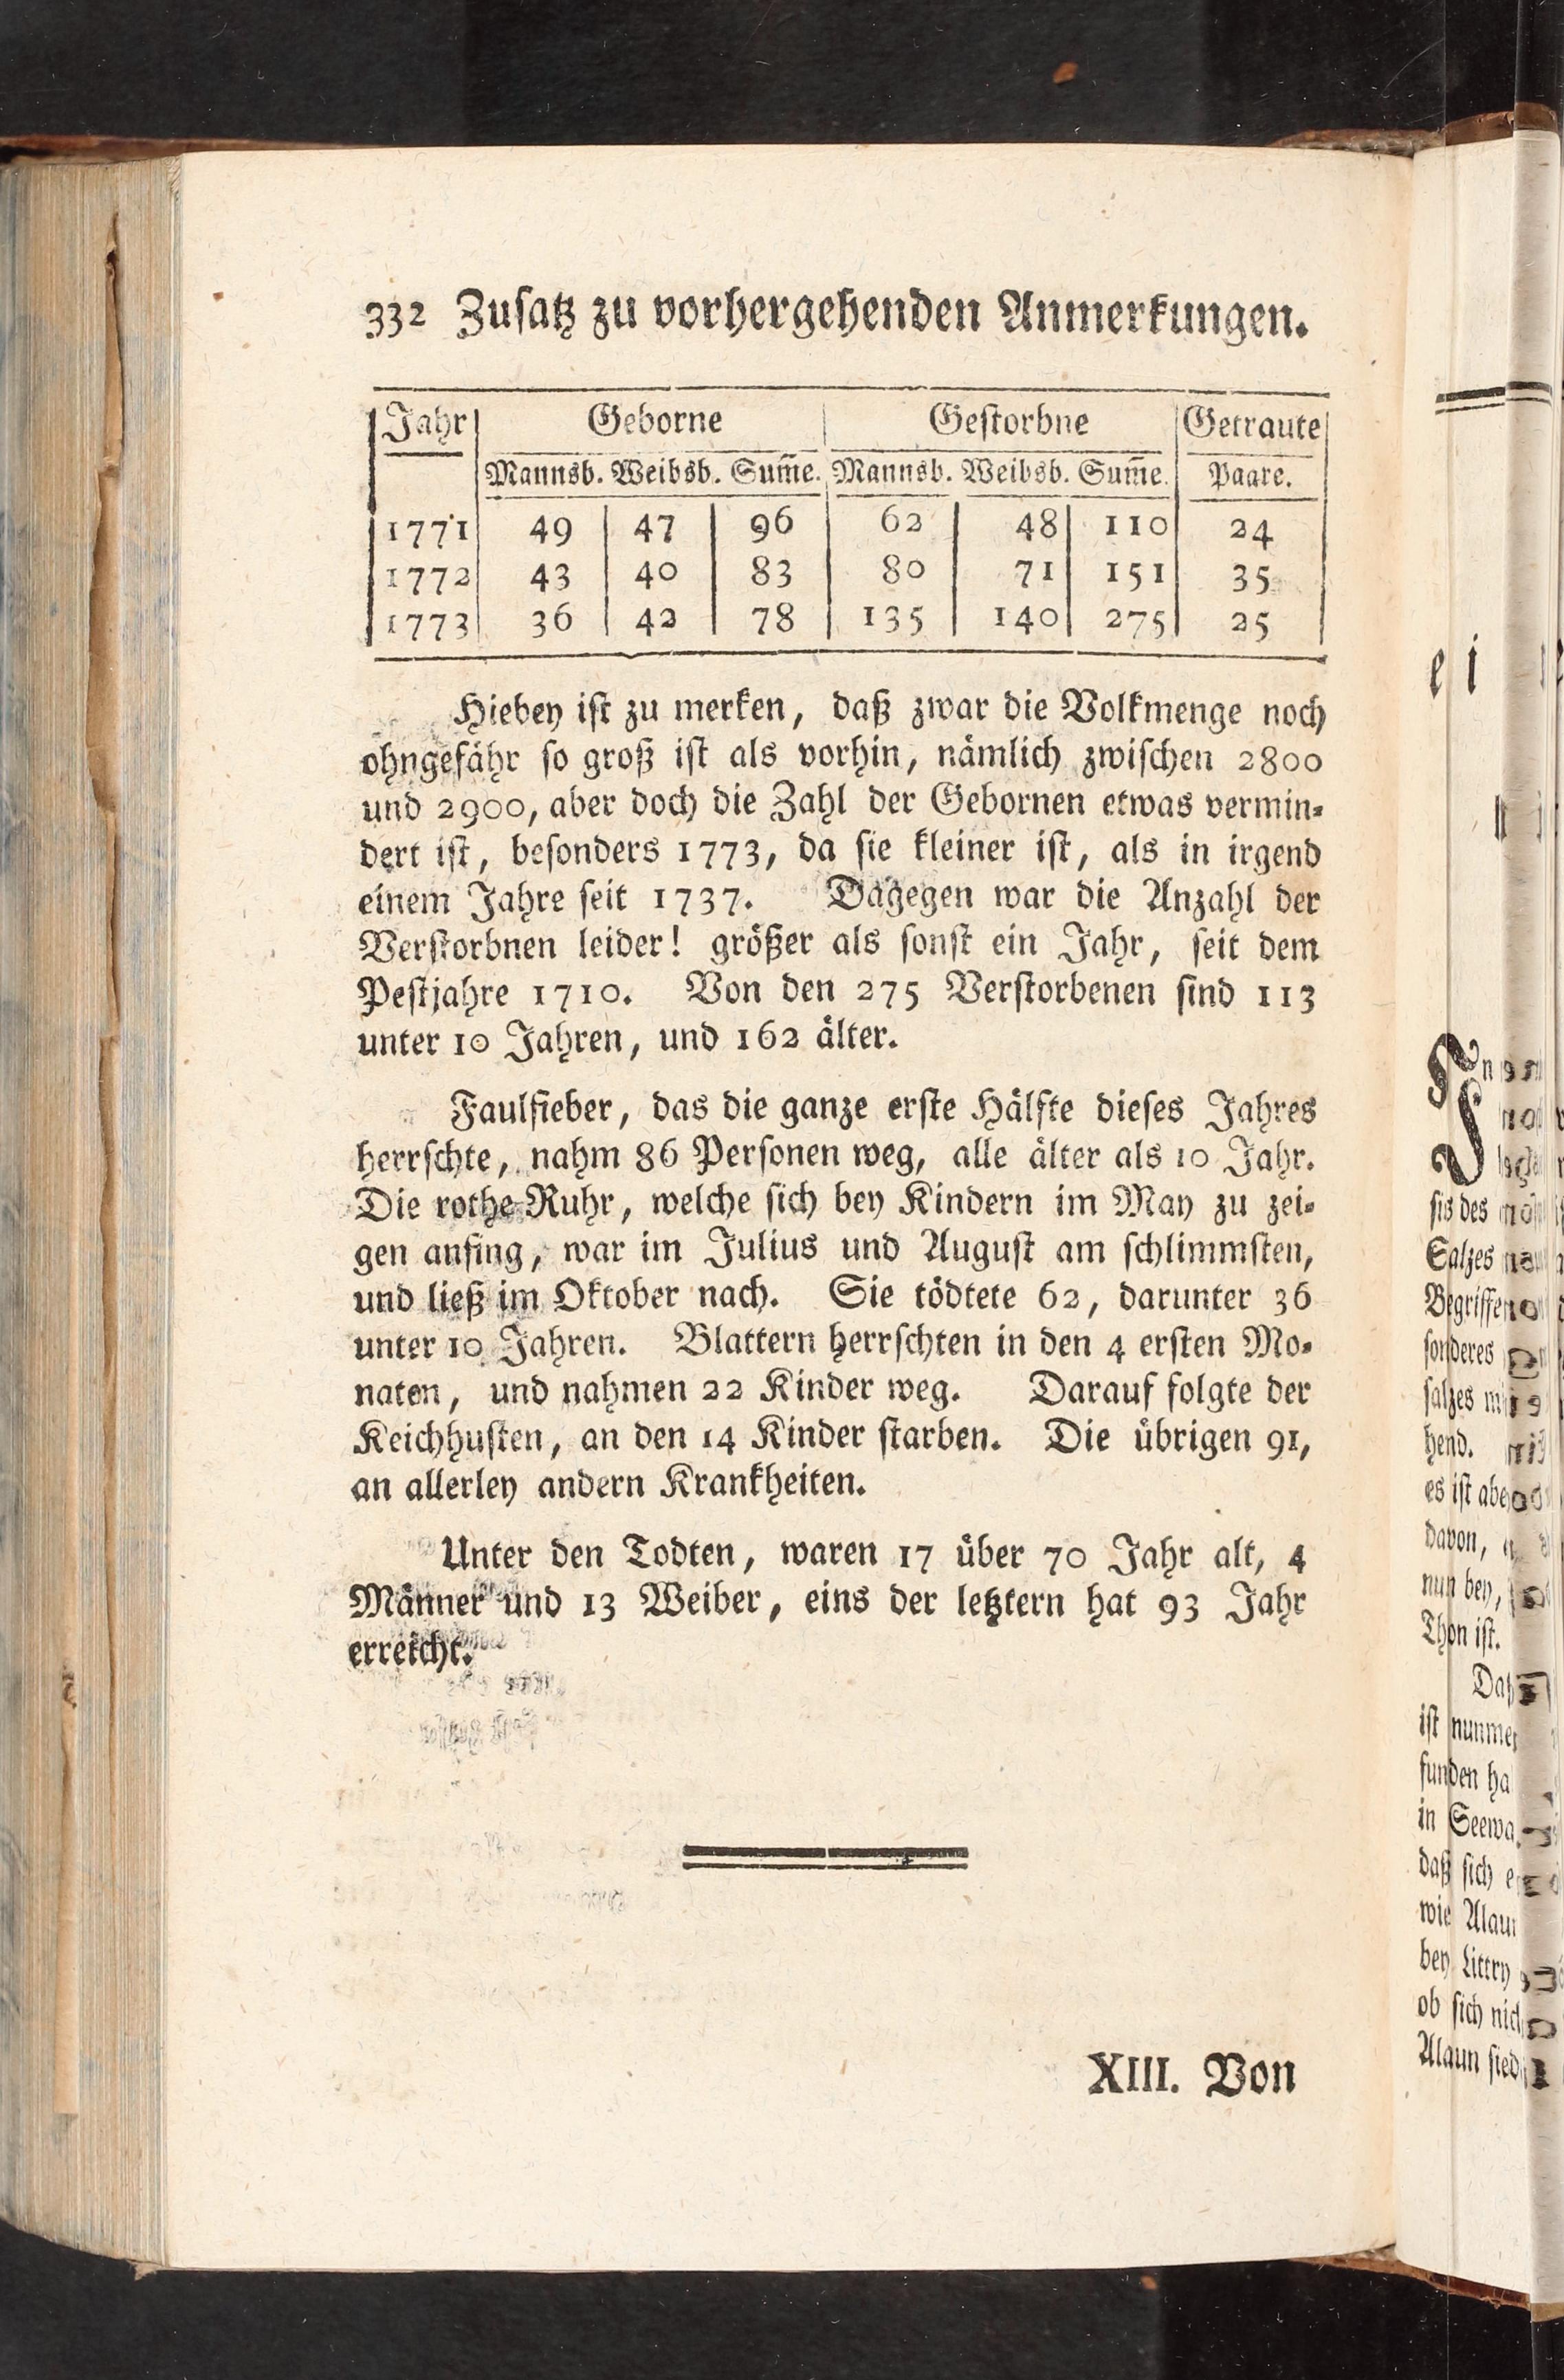 332 Zusatz zu vorhergehenden Anmerkungen.
Jahr Geborne Gestorbne Getraute
Mannsb. Weibsb. Sum̅e. Mannsb. Weibsb. Sum̅e. Paare.
1771 49 47 96 62 48 110 24
1772 43 40 83 80 71 151 35
1773 36 42 78 135 140 275 25
Hiebey ist zu merken, daß zwar die Volkmenge noch
ohngefähr so groß ist als vorhin, nämlich zwischen 2800
und 2900, aber doch die Zahl der Gebornen etwas vermin-
dert ist, besonders 1773, da sie kleiner ist, als in irgend
einem Jahre seit 1737. Dagegen war die Anzahl der
Verstorbnen leider! größer als sonst ein Jahr, seit dem
Pestjahre 1710. Von den 275 Verstorbenen sind 113
unter 10 Jahren, und 162 älter.
Faulfieber, das die ganze erste Hälfte dieses Jahres
herrschte, nahm 86 Personen weg, alle älter als 10 Jahr.
Die rothe Ruhr, welche sich bey Kindern im May zu zei-
gen anfing, war im Julius und August am schlimmsten,
und ließ im Oktober nach. Sie tödtete 62, darunter 36
unter 10 Jahren. Blattern herrschten in den 4 ersten Mo-
naten, und nahmen 22 Kinder weg. Darauf folgte der
Keichhusten, an den 14 Kinder starben. Die übrigen 91,
an allerley andern Krankheiten.
Unter den Todten, waren 17 über 70 Jahr alt, 4
Männer und 13 Weiber, eins der letztern hat 93 Jahr
erreicht.
XIII. Von
sis des
Salzes
sonderes
salzes
hend.
es ist
davon,
nun bey,
Thon ist.
ist
in
daß sich
wie
bey Littry
ob sich
Alaun